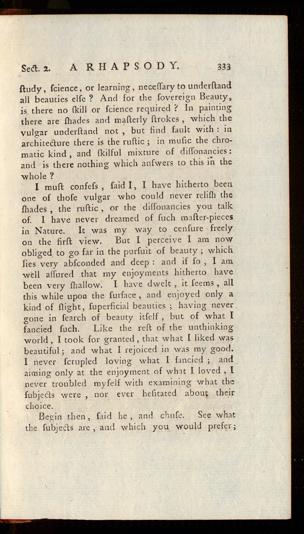 Sect. 2. A RHAPSODY. 333
ſtudy, ſcience, or learning, neceſſary to underſtand
all beauties elſe ? And for the ſovereign Beauty,
is there no ſkill or ſcience required ? In painting
there are ſhades and maſterly ſtrokes, which the
vulgar underſtand not, but find fault with : in
architecture there is the ruſtic ; in muſic the chro-
matic kind, and ſkilful mixture of diſſonancies :
and is there nothing which anſwers to this in the
whole ?
I muſt confeſs, ſaid I, I have hitherto been
one of thoſe vulgar who could never reliſh the
ſhades, the ruſtic, or the diſſonancies you talk
of. I have never dreamed of ſuch maſter-pieces
in Nature. It was my way to cenſure freely
on the firſt view. But I perceive I am now
obliged to go far in the purſuit of beauty ; which
lies very abſconded and deep : and if ſo, I am
well aſſured that my enjoyments hitherto have
been very ſhallow. I have dwelt, it ſeems, all
this while upon the ſurface, and enjoyed only a
kind of ſlight, ſuperficial beauties ; having never
gone in ſearch of beauty itſelf, but of what I
fancied ſuch. Like the reſt of the unthinking
world, I took for granted, that what I liked was
beautiful ; and what I rejoiced in was my good.
I never ſcrupled loving what I fancied ; and
aiming only at the enjoyment of what I loved, I
never troubled myſelf with examining what the
ſubjects were, nor ever heſitated about their
choice.
Begin then, ſaid he, and chuſe. See what
the ſubjects are, and which you would prefer ;